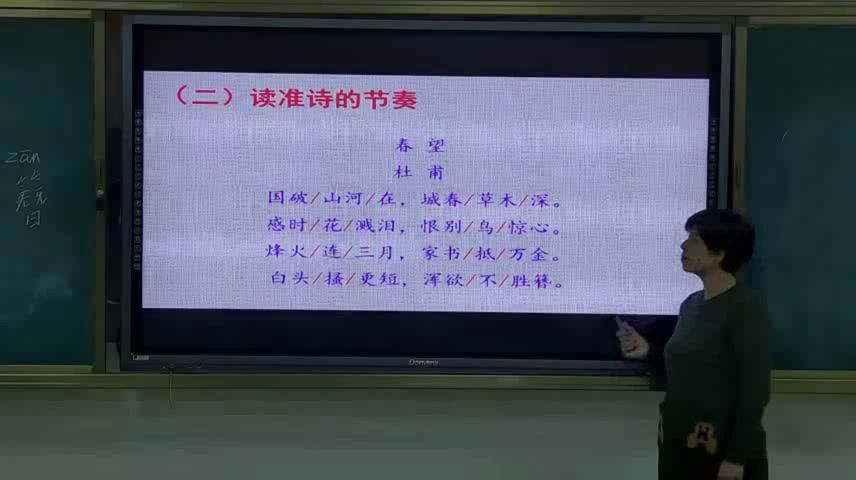 zān
簪
（二）读准诗的节奏
春 望
杜 甫
国破/山河/在，城春/草木/深。
感时/花/溅泪，恨别/鸟/惊心。
烽火/连/三月，家书/抵/万金。
白头/搔/更短，浑欲/不/胜簪。